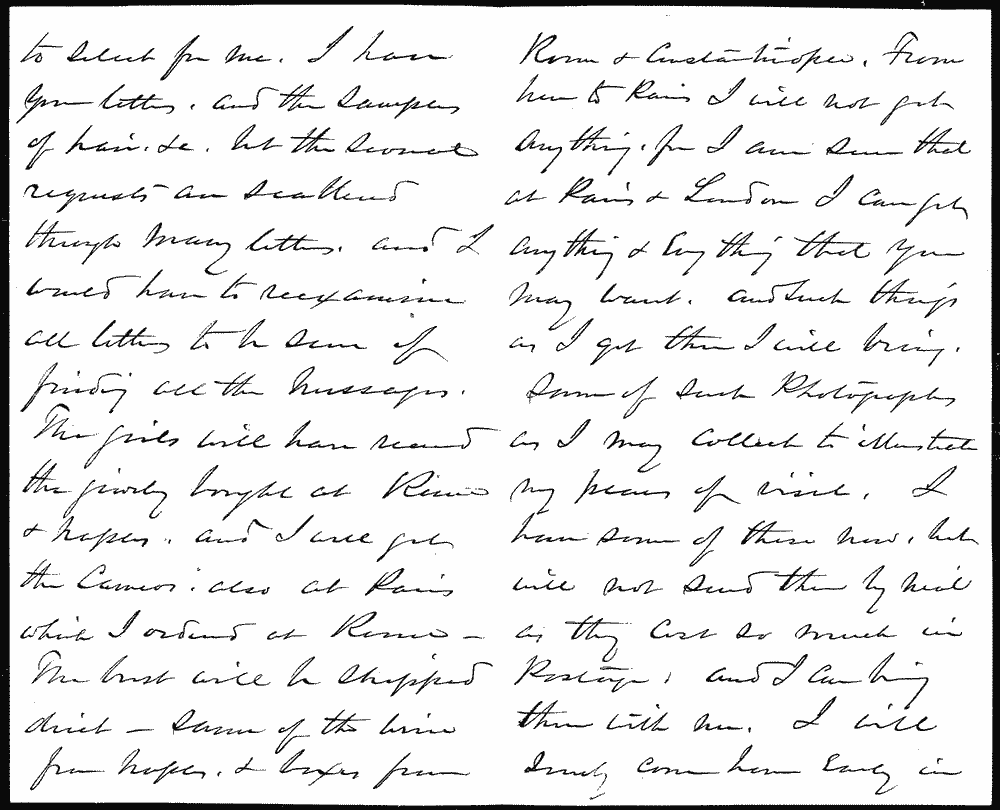 to select for me. I have
your letters. and the samples
of hair. &c. but the several
requests are scattered
through many letters. and I
would have to reexamine
all letters to be sure of
finding all the messages.
The girls will have received
the jewelry bought at Rome
& Naples. and I will get
the Cameos. also at Paris
which I ordered at Rome -
The bust will be shipped
direct - same of the wine
from Naples. & boxes from
Rome & Constantinople. From
here to Paris I will not get
anything. for I am sure that
at Paris & London I can get
anything & Everything that you
may want. and such things
as I get then I will bring.
Same of such Photographs
as I may collect to illustrate
my places of visit. I
have some of these now, but
will not send them by mail
as they cost so much in
Postage, and I can bring
them with me. I will
surely come home Early in